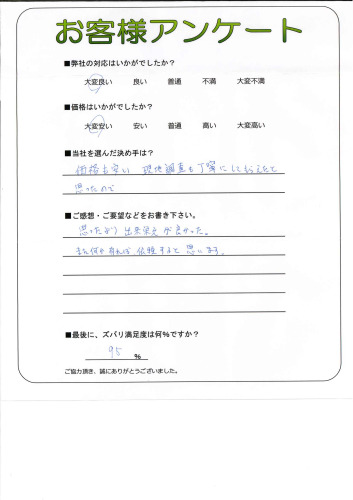 お客様アンケート
■弊社の対応はいかがでしたか？
大変良い 良い 普通 不満 大変不満
■価格はいかがでしたか？
大変安い 安い 普通 高い 大変高い
■当社を選んだ決め手は？
価格も安い 現地調査も丁寧にしてもらえたと
思ったので
■ご感想・ご要望などをお書き下さい。
思ったより出来栄えが良かった。
また何か有れば依頼すると思います。
■最後に、ズバリ満足度は何％ですか？
95 ％
ご協力頂き、誠にありがとうございました。